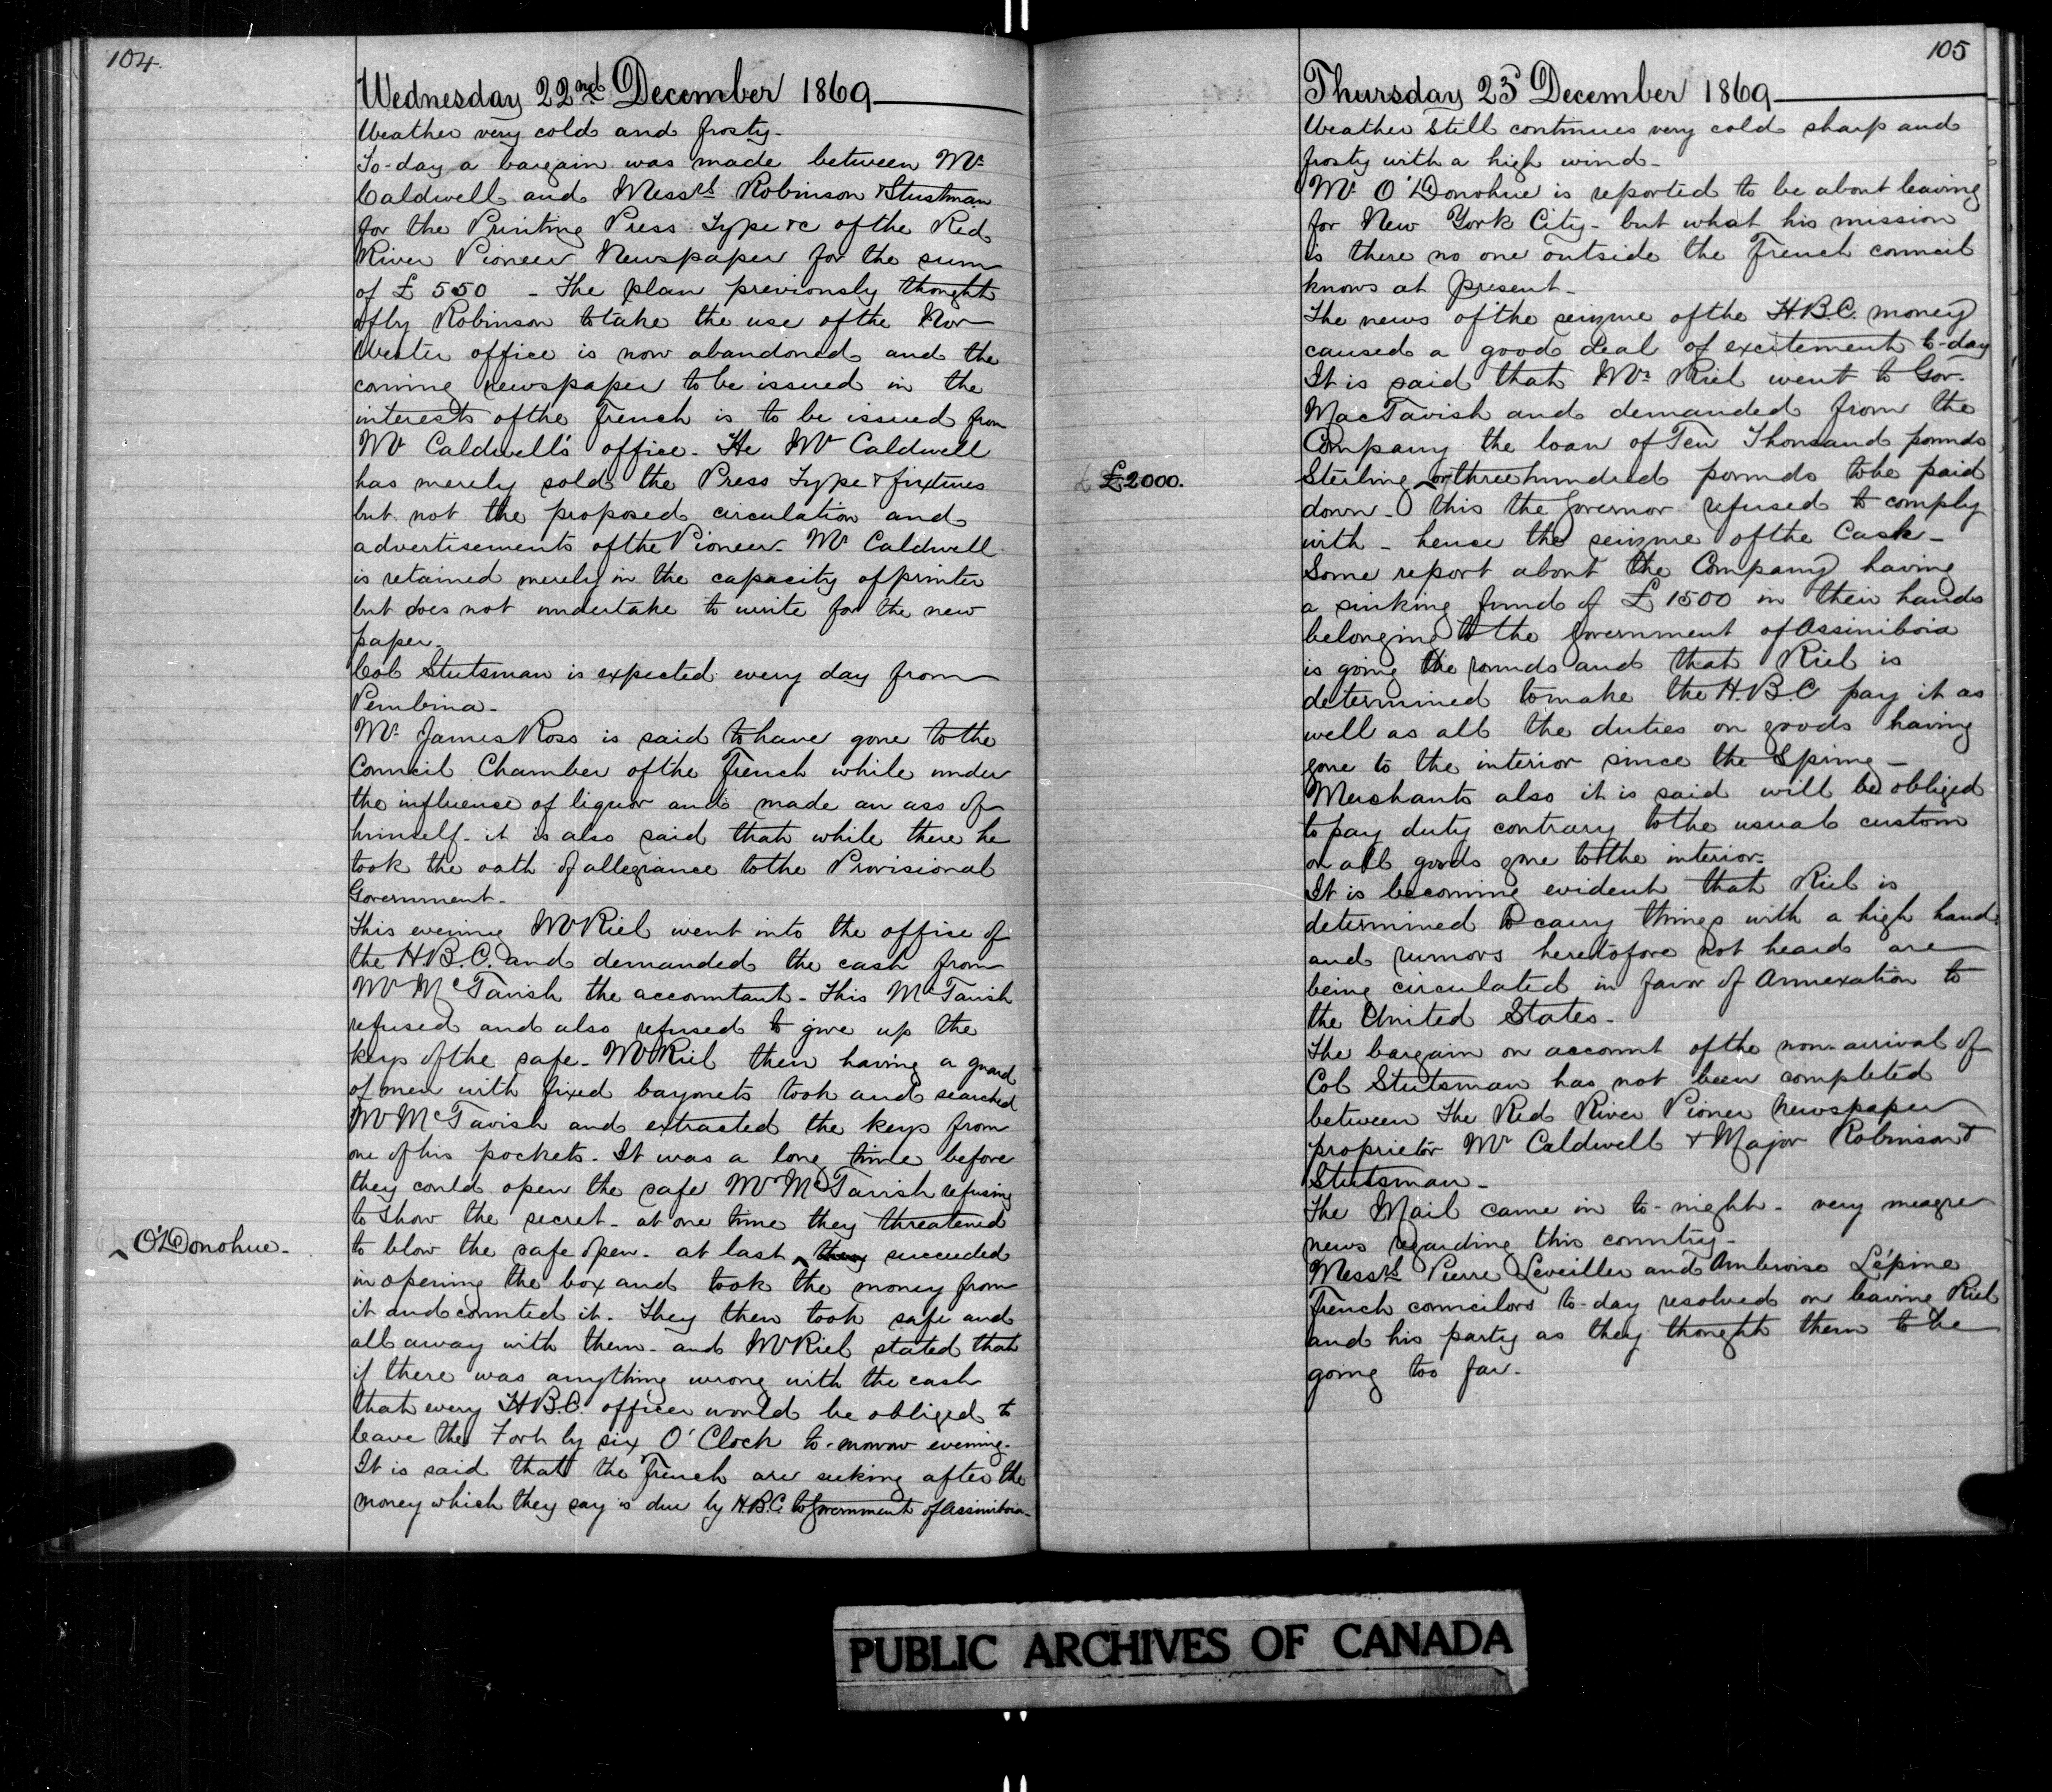 104.
Wednesday 22nd December 1869
Weather very cold and frosty-
To-day a bargain was made between Mr
Caldwell and Messrs Robinson & Stustman
for the Printing Press Type &c of the Red
River Pioneer Newspaper for the sum
of £ 550 - The plan previously thought
of by Robinson to take the use of the Nor
Wester office is now abandoned and the
coming newspaper to be issued in the
interests of the French is to be issued from
Mr Caldwell's office. He Mr Caldwell
has merely sold the Press Type & fixtures
but not the proposed circulation and
advertisements of the Pioneer. Mr Caldwell
is retained merely in the capacity of printer
but does not undertake to write for the new
paper.
Col Stutsman is expected every day from
Pembina-
Mr James Ross is said to have gone to the
Council Chamber of the French while under
the influence of liquor and made an ass of
himself- it is also said that while there he
took the oath of allegiance to the Provisional
Government-
This evening Mr Riel went into the office of
the H.B.C. and demanded the cash from
Mr McTavish the accountant- This McTavish
refused and also refused to give up the
keys of the safe- Mr Riel then having a guard
of men with fixed bayonets took and searched
Mr McTavish and extracted the keys from
one of his pockets- It was a long time before
they could open the safe Mr McTavish refusing
to show the secret- at one time they threatened
O'Donohue-
to blow the safe open- at last ‸ they succeeded
in opening the box and took the money from
it and counted it- They then took safe and
all away with them- and Mr Riel stated that
if there was anything wrong with the cash
that every H.B.C. officer would be obliged to
leave the Fort by six O'Clock to-morrow evening-
It is said that the French are seeking after the
money which they say is due by H.B.C. to Government of Assiniboia-
105
Thursday 23d December 1869
Weather still continues very cold sharp and
frosty with a high wind-
Mr O'Donohue is reported to be about leaving
for New York City- but what his mission
is there no one outside the French council
knows at present-
The news of the seizure of the H.B.C. money
caused a good deal of excitement to-day
It is said that Mr Riel went to Gov-
MacTavish and demanded from the
Company the loan of Ten Thousand pounds
£2000.
Sterling or three hundred pounds to be paid
down- this the Governor refused to comply
with- hence the seizure of the Cash-
Some report about the Company having
a sinking fund of £1500 in their hands
belonging to the government of Assiniboia
is going the rounds and that Riel is
determined to make the H.B.C pay it as
well as all the duties on goods having
gone to the interior since the Spring-
Merchants also it is said will be obliged
to pay duty contrary to the usual custom
on all goods gone to the interior-
It is becoming evident that Riel is
determined to carry things with a high hand
and rumors heretofore not heard are
being circulated in favor of Annexation to
the United States-
The bargain on account of the non-arrival of
Col Stutsman has not been completed
between The Red River Pioner Newspaper
proprietor Mr Caldwell & Major Robinson &
Stutsman-
The Mail came in to-night- very meagre
news regarding this country-
Messrs Pierre Leveiller and Ambroise Lépine
French councilors to-day resolved on leaving Riel
and his party as they thought them to be
going too far-
PUBLIC ARCHIVES OF CANADA